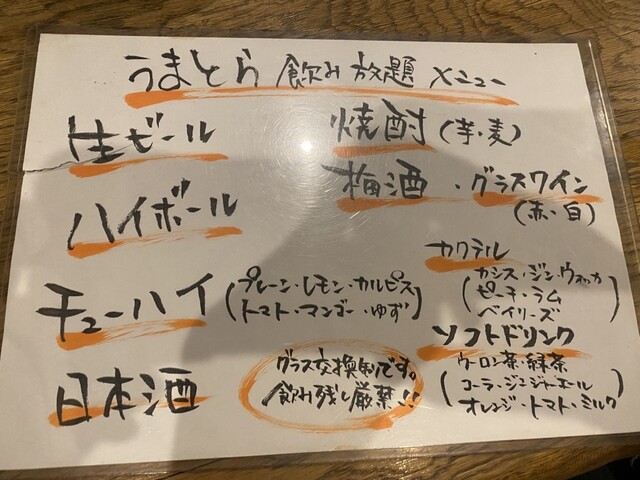 うまとら 飲み放題 メニュー
生ビール
ハイボール
チューハイ
(プレーン・レモン・カルピス
トマト・マンゴー・ゆず)
日本酒
グラス交換制です。
飲み残し厳禁!!
焼酎(芋・麦)
梅酒・グラスワイン
(赤・白)
カクテル
(カシス・ジン・ウォッカ
ピーチ・ラム
ベイリーズ)
ソフトドリンク
(ウーロン茶・緑茶
コーラ・ジンジャーエール
オレンジ・トマト・ミルク)